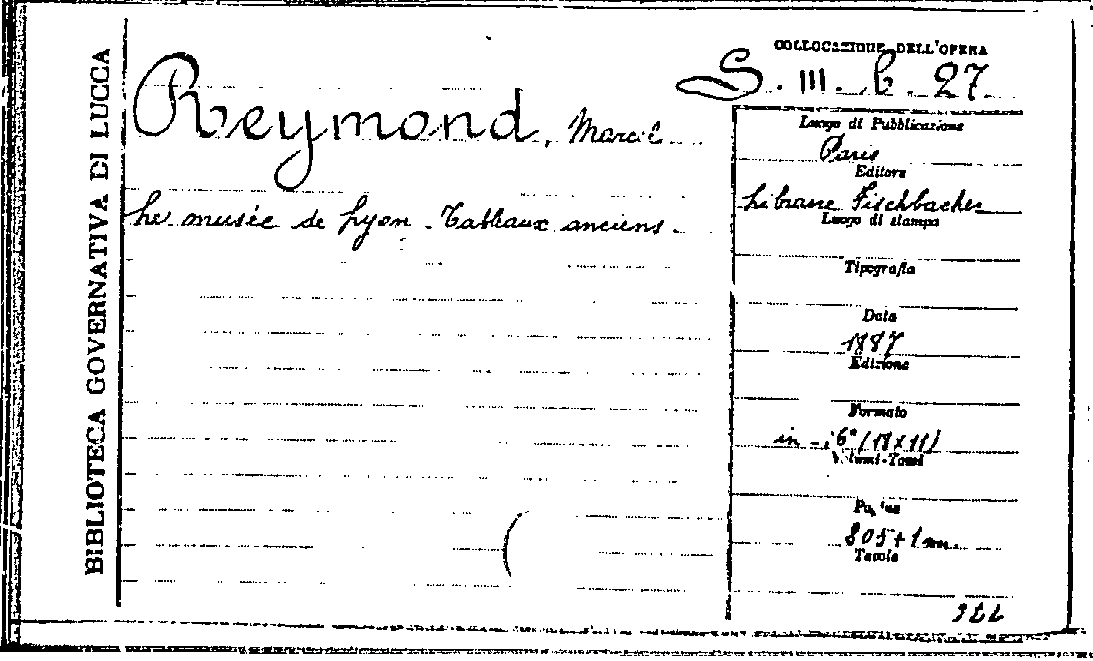 BIBLIOTECA GOVERNATIVA DI LUCCA
COLLOCAZIONE DELL'OPERA
S. III. b. 27
Reymond, Marcel
Le musée de Lyon. Tableaux anciens.
Luogo di Pubblicazione
Paris
Editore
Librairie Fischbacher
Luogo di stampa
Tipografia
Data
1887
Edizione
Formato
in-16° (18 x 11)
Volumi-Tomi
Pagine
805+1
Tavole